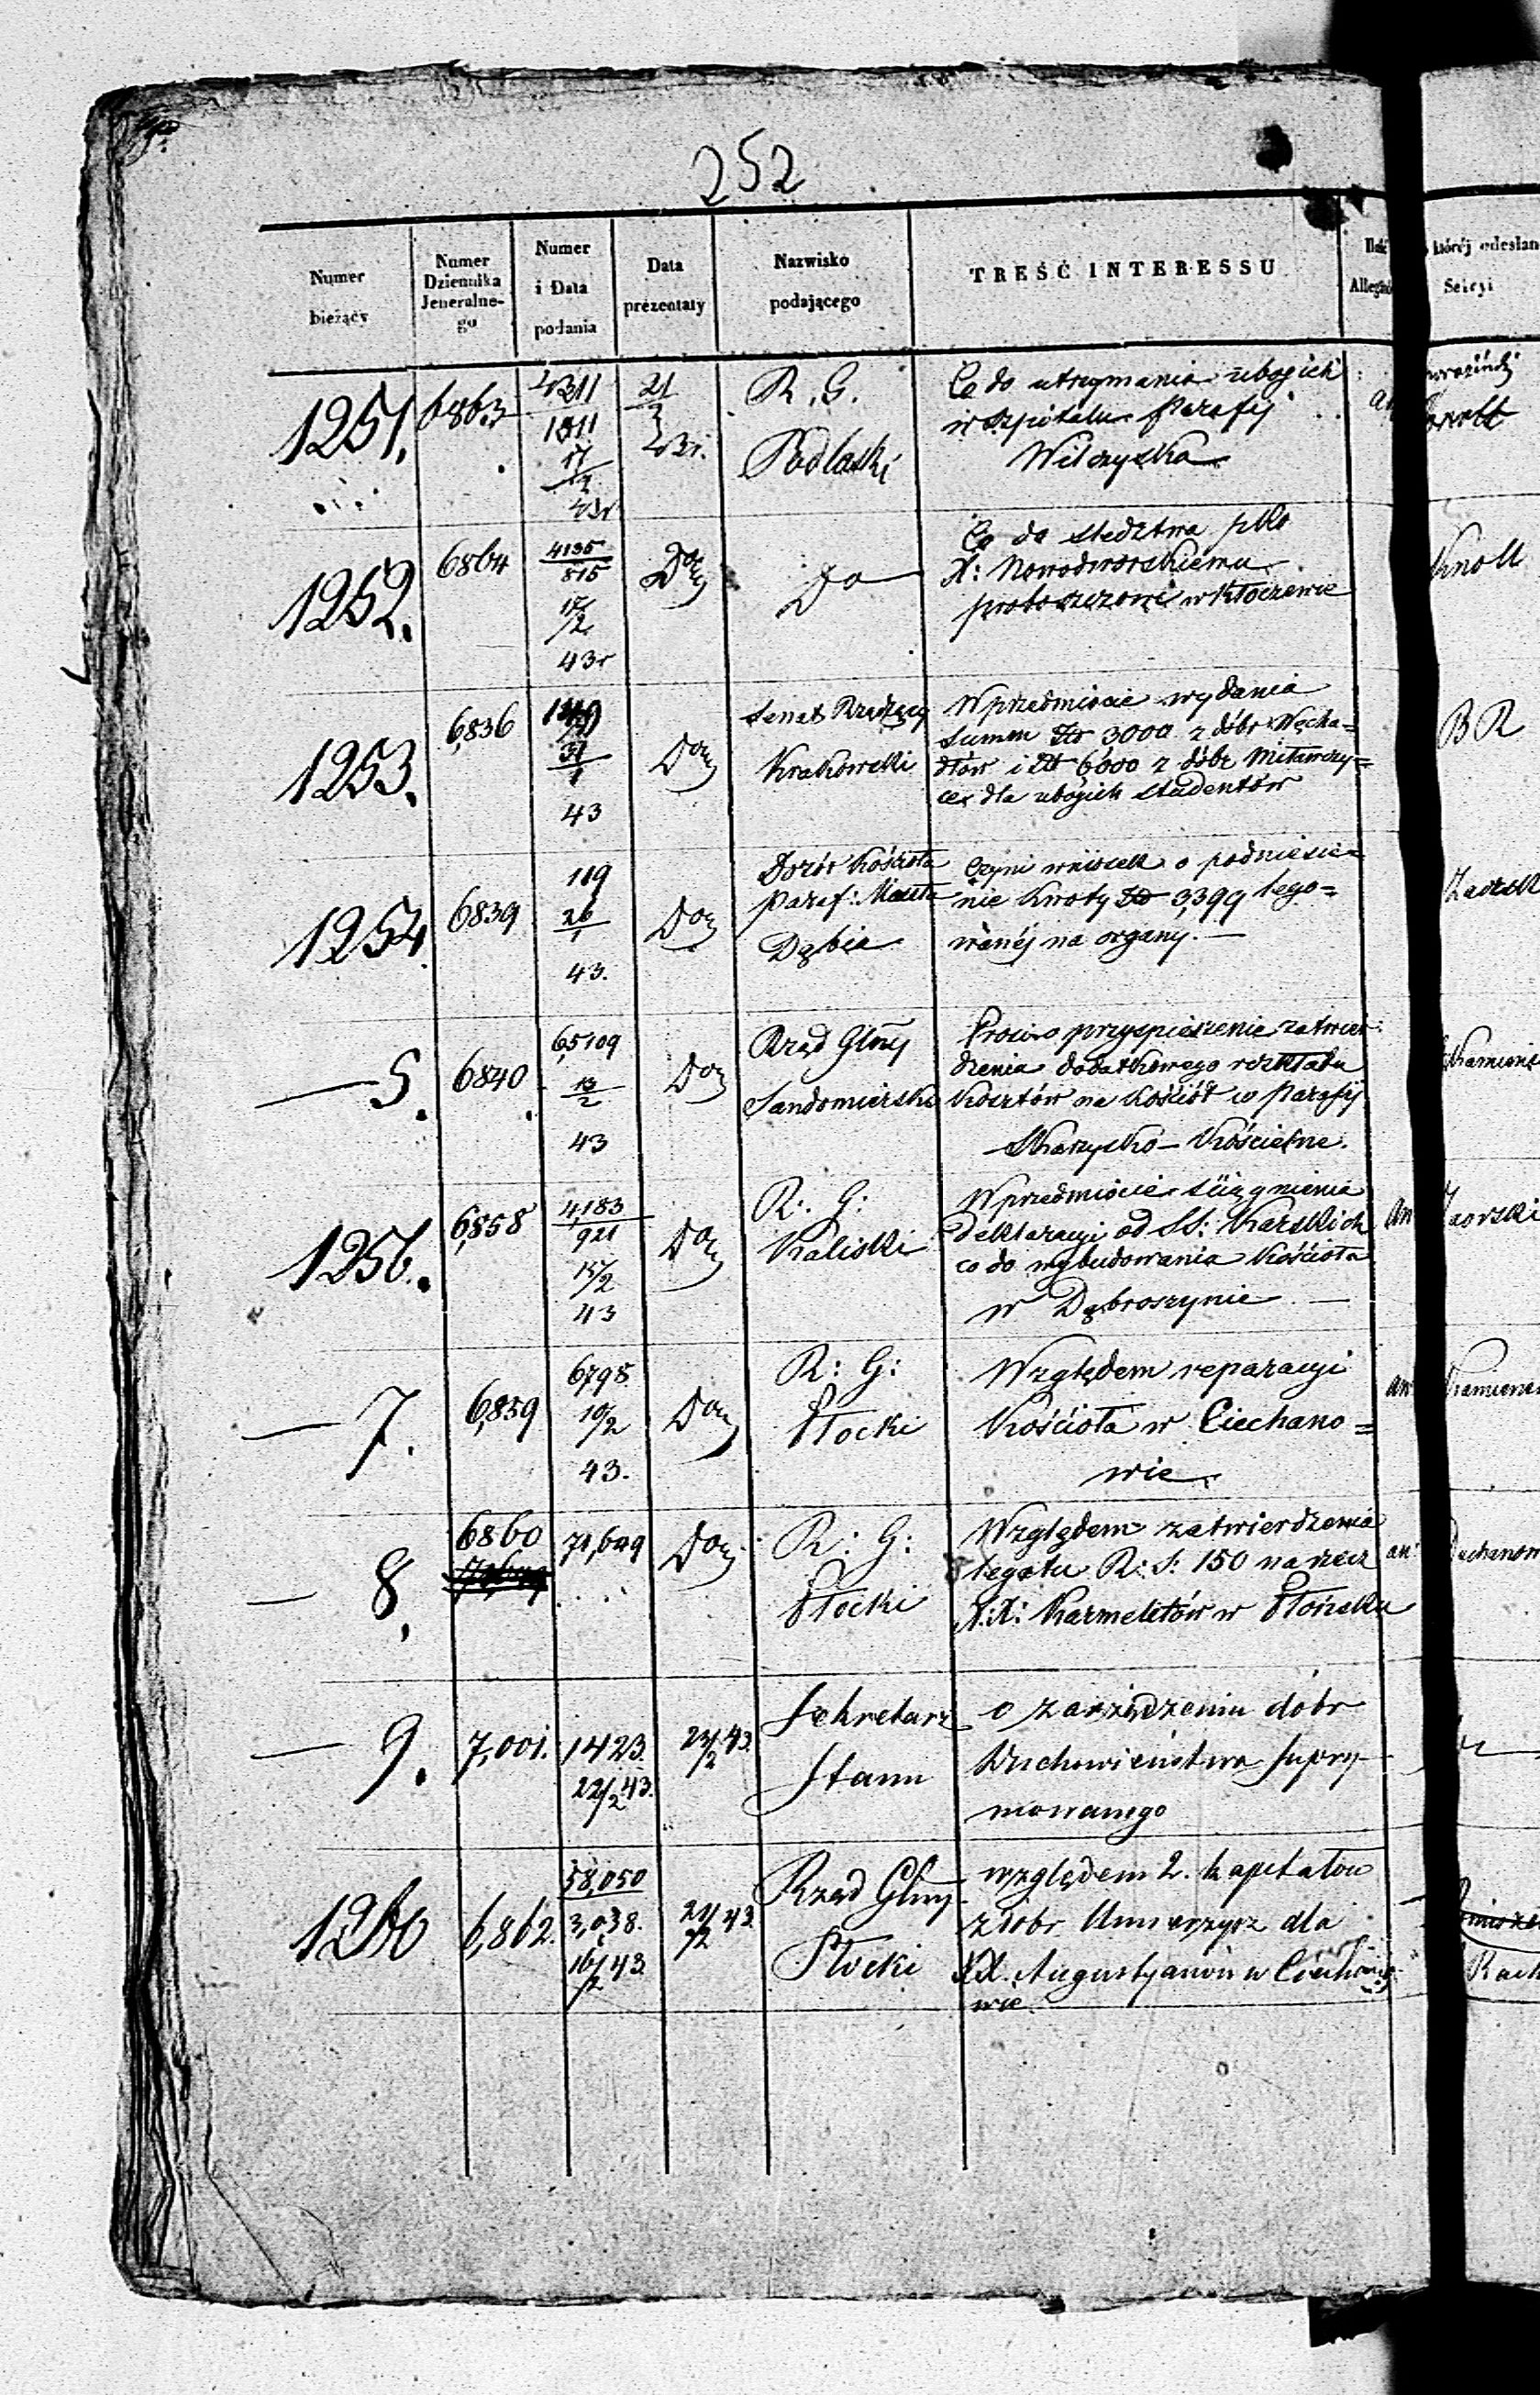 252
Numer
bieżący
Numer
Dziennika
Jeneralne-
go
Numer
i Data
podania
Data
prezentaty
Nazwisko
podającego
TREŚĆ INTERESSU
Allegató
której odesłan
Sekcyi
1251.
6863
4311
1311
17
2
43r
21
2
43r.
R. G.
Podlaski
Co do utrzymania ubogich
w szpitalu Parafij
Wilczyska
1252.
6864
4135
815
17/2
43r
Do
Co do sledztwa pko
X: Nowodworskiemu
proboszczowi w Kłoczewie
Knoll
1253.
6,836
31
1
43
Senat Rządzący
Krakowski
W przedmiocie wydania
Summ Złr 3000 z dóbr Węcha=
dłów i Zł 6,000 z dóbr Mitawczy=
ce dla ubogich studentów
BR
1254.
6839
119
26
1
43.
Dozór Kościoła
Paraf: Miasta
Dąbia
Czyni wniosek o podniesie=
nie kwoty Zł 3,399 lego=
wanéj na organy.—
— 5.
6840
65109
13
2
43
Rząd Glny
Sandomierski
Prosi o przyspieszenie zatwier
dzenia dodatkowego rozkładu
kosztów na kościół w Parafij
Skarzysko-Kościelne.
1256.
6,858
4,183
921
15/2
43
R: G:
Kaliski
W przedmiocie ściągnienia
deklaracyi od SS: Karskich
co do wybudowania kościoła
w Dąbroszynie —
an
Zaorski
— 7.
6,859
6798
10/2
43.
R: G:
Płocki
Względem reparacyi
Kościoła w Ciechano=
wie.
an
— 8.
6860
71,649
R: G:
Płocki
Względem zatwierdzenia
legatu R: S: 150 na rzecz
X.X: Karmelitów w Płońsku
an:
— 9.
7,001.
1423.
22/2 43.
23/2 43.
Sekretarz
Stanu
o zarządzeniu dóbr
Duchowieństwa supry-
mowanego
1260
6,862.
58,050
3,038.
16/2 43.
21/2 43.
Rząd Glny
Płocki
względem 2. kapitałow
z dobr Umierzysz dla
XX. Augustyanów w Ciechano
wie.